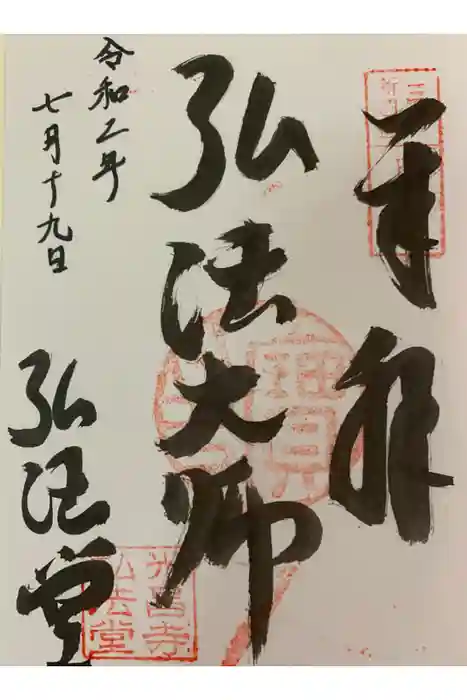 奉拝
弘法大師
令和二年
七月十九日
弘法堂
光昌寺
弘法堂